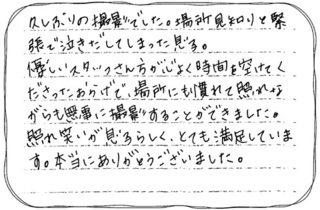 久しぶりの撮影でした。場所見知りと緊
張で泣きだしてしまった息子る。
優しいスタッフさん方が心よく時間を空けてく
ださったおかげで、場所にも慣れて照れな
がらも無事に撮影することができました。
照れ笑いが息子らしく、とても満足していま
す。本当にありがとうございました。